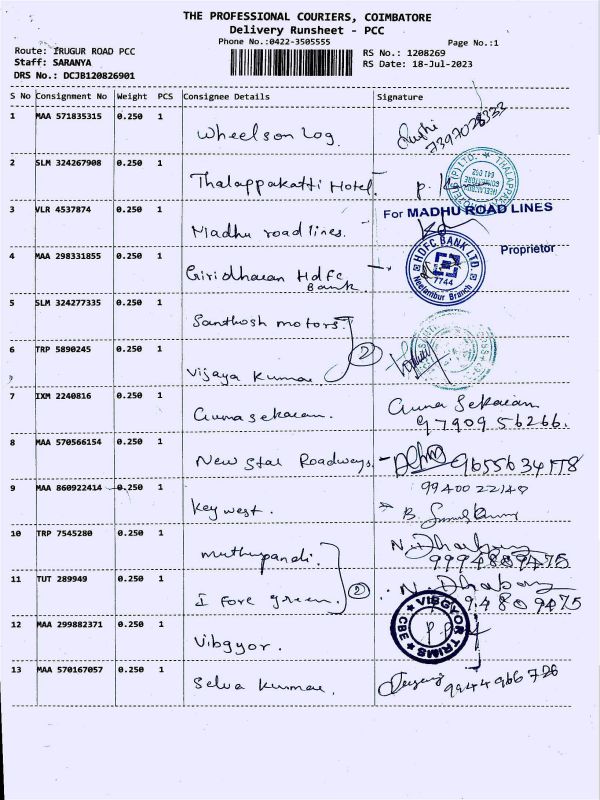 THE PROFESSIONAL COURIERS, COIMBATORE
Delivery Runsheet - PCC
Phone No.:0422-3505555
Page No.:1
Route: IRUGUR ROAD PCC
RS No.: 1208269
Staff: SARANYA
RS Date: 18-Jul-2023
DRS No.: DCJB120826901
S No Consignment No Weight PCS Consignee Details Signature
1 MAA 571835315 0.250 1
Wheelson Log.
7397028333
2 SLM 324267908 0.250 1
Thalappakatti Hotel.
3 VLR 4537874 0.250 1
For MADHU ROAD LINES
Madhu road lines.
Proprietor
4 MAA 298331855 0.250 1
Giridharan Hdfc
Bank
HDFC BANK LTD.
7744
Neelambur Branch
5 SLM 324277335 0.250 1
Santhosh motors.
6 TRP 5890245 0.250 1
2
Vijaya Kumar.
7 IXM 2240816 0.250 1
Guna Sekaran.
Guna Sekaran
97909 56266.
8 MAA 570566154 0.250 1
New Star Roadways.
9 MAA 860922414 0.250 1
99400 22140
Key west.
10 TRP 7545280 0.250 1
muthupandi.
9994809475
11 TUT 289949 0.250 1
2
I Fore green.
94809475
12 MAA 299882371 0.250 1
VIBGYOR TRIMS
CBE
Vibgyor.
13 MAA 570167057 0.250 1
Selva Kumar.
9944 966 726